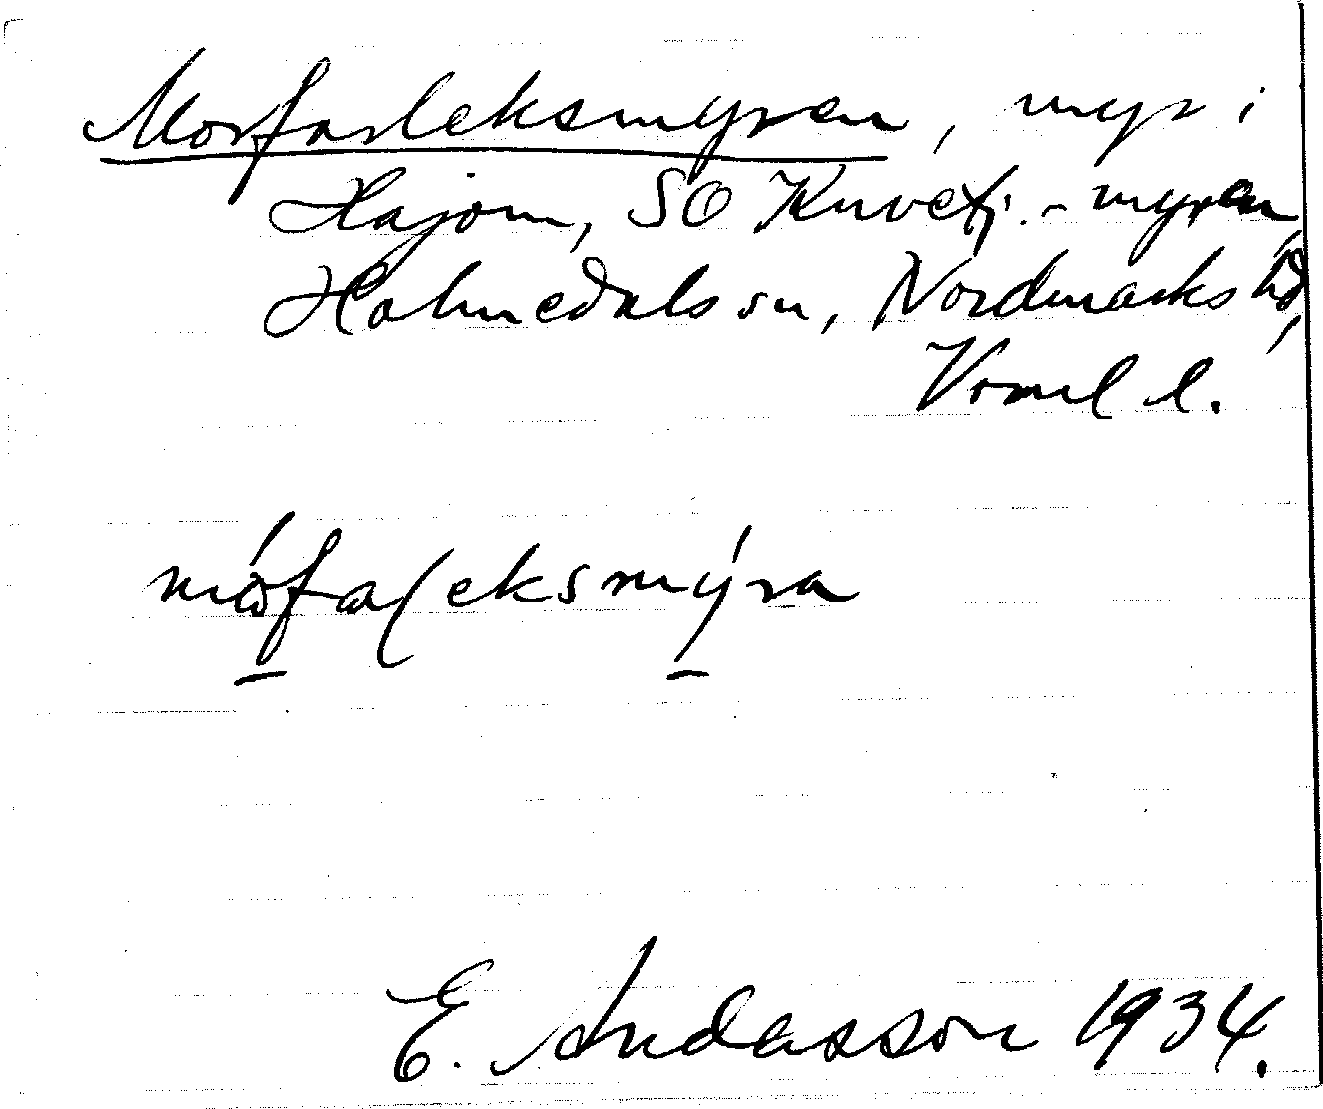 Morfarleksmyren, myr i
Hajom, SO Knvetj.-myren,
Holmedals sn, Nordmarks hd,
Vrml l.
mófaɼeksmýra
E. Andasson 1934.